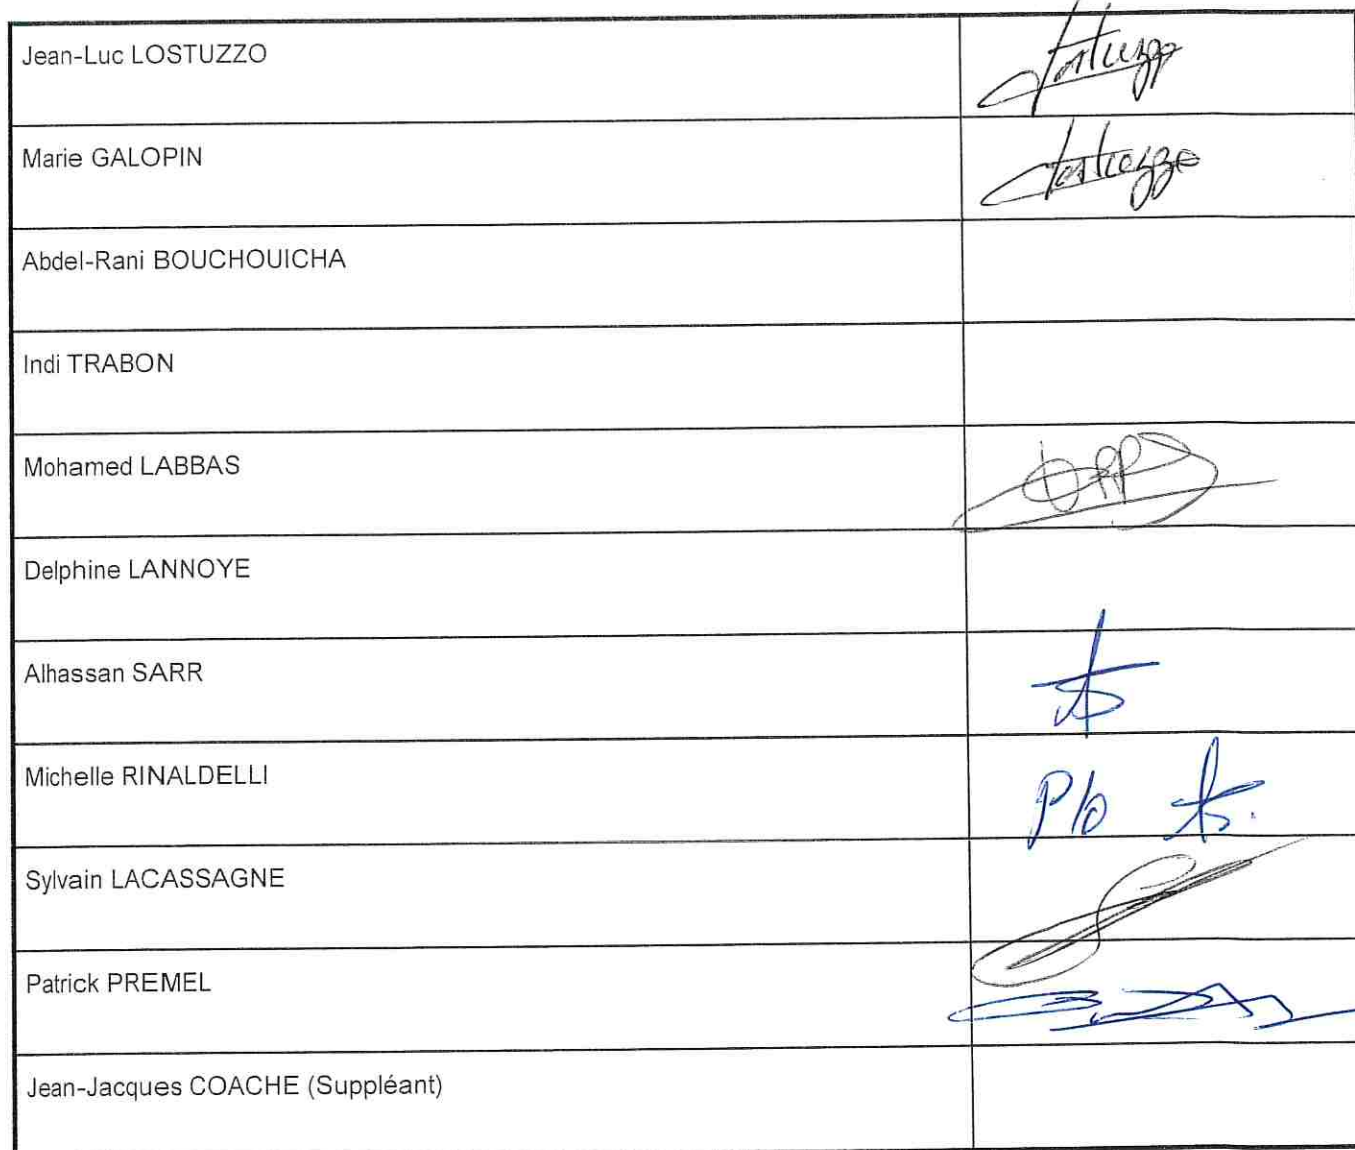 Jean-Luc LOSTUZZO
Lostuzzo
Marie GALOPIN
Lostuzzo
Abdel-Rani BOUCHOUICHA
Indi TRABON
Mohamed LABBAS
Delphine LANNOYE
Alhassan SARR
Michelle RINALDELLI
P/o
Sylvain LACASSAGNE
Patrick PREMEL
Jean-Jacques COACHE (Suppléant)